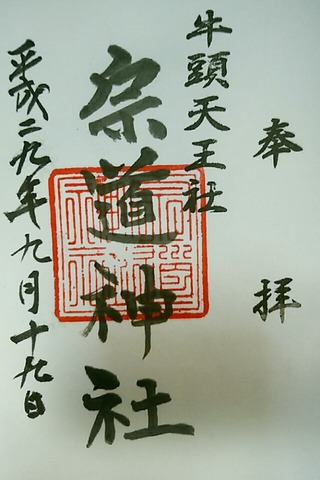 奉拝
牛頭天王社
宗道神社
平成二九年九月十九日